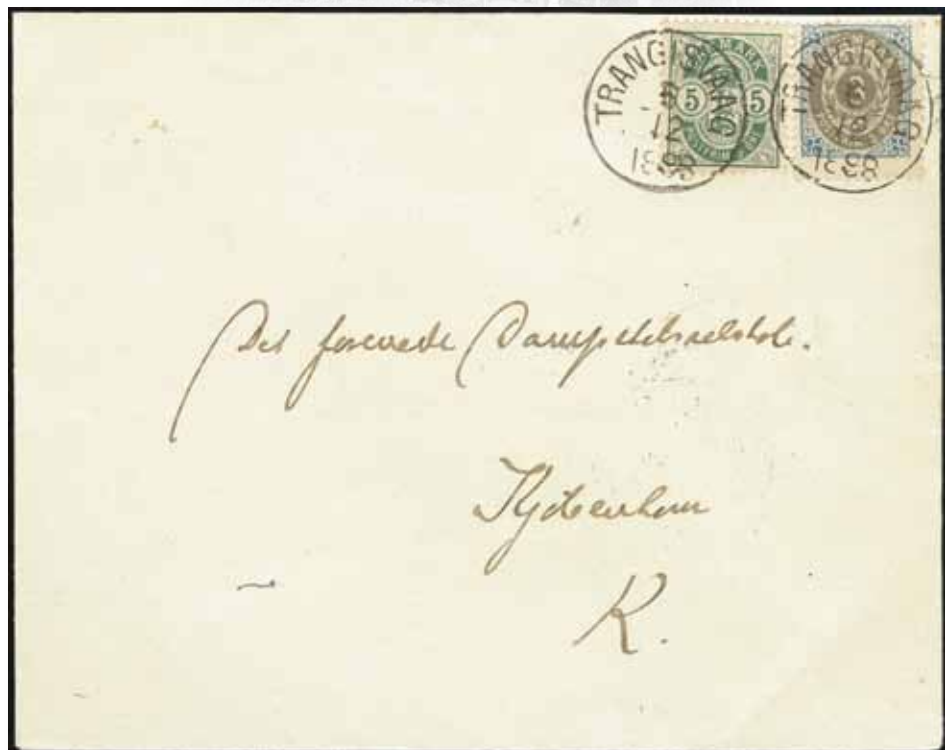 TRANGISVAAG
6
12
1898
DANMARK
5 5
TRANGISVAAG
6
12
1898
Det forenede Dampskibsselskab.
Kjøbenhavn
K.